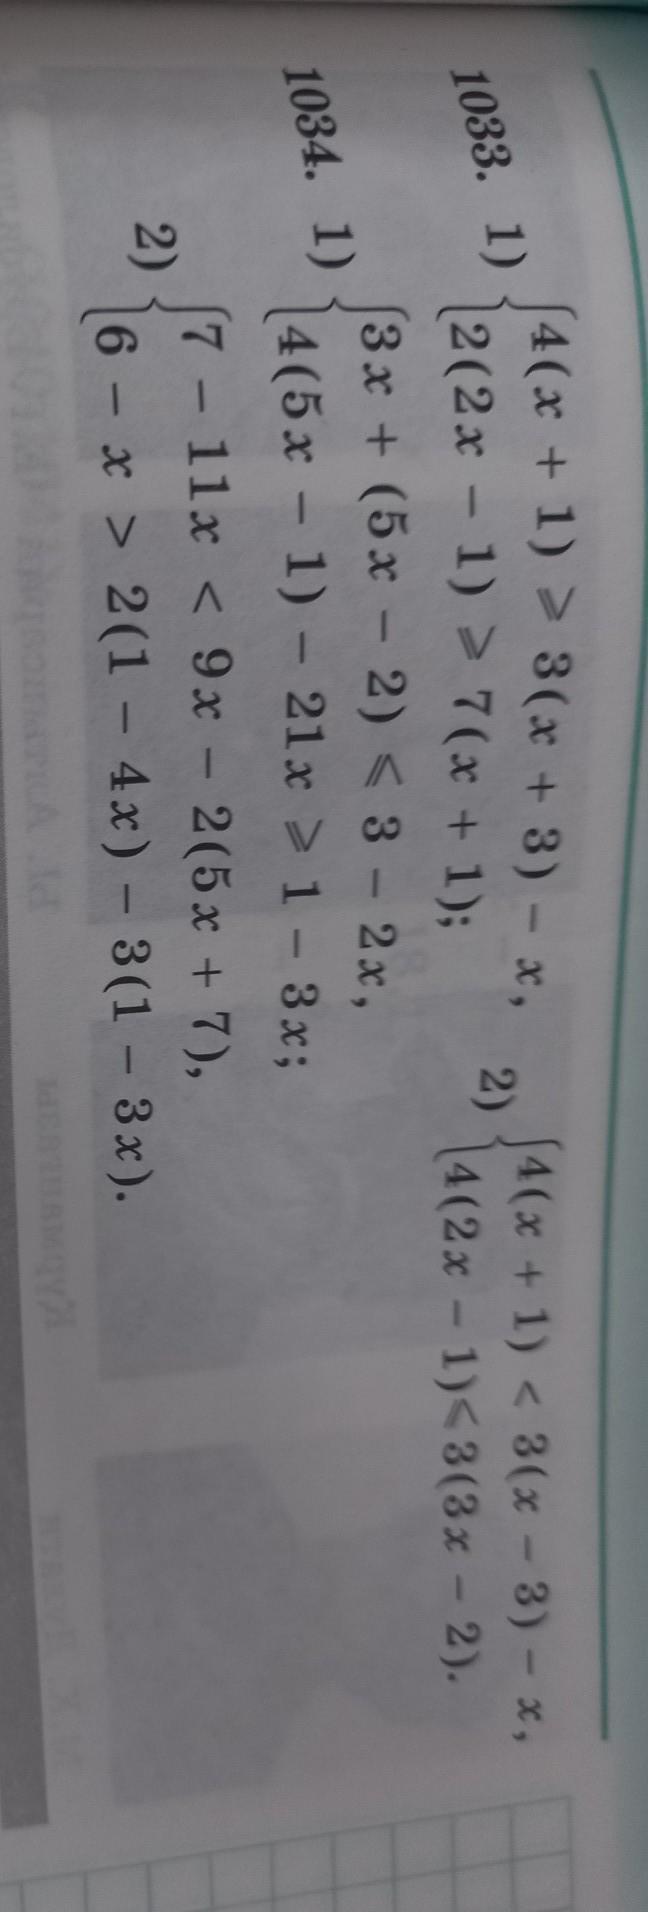 1033. 1) {4(x + 1) ⩾ 3(x + 3) − x,
2(2x − 1) ⩾ 7(x + 1);
2) {4(x + 1) < 3(x − 3) − x,
4(2x − 1) ⩽ 3(3x − 2).
1034. 1) {3x + (5x − 2) ⩽ 3 − 2x,
4(5x − 1) − 21x ⩾ 1 − 3x;
2) {7 − 11x < 9x − 2(5x + 7),
6 − x > 2(1 − 4x) − 3(1 − 3x).